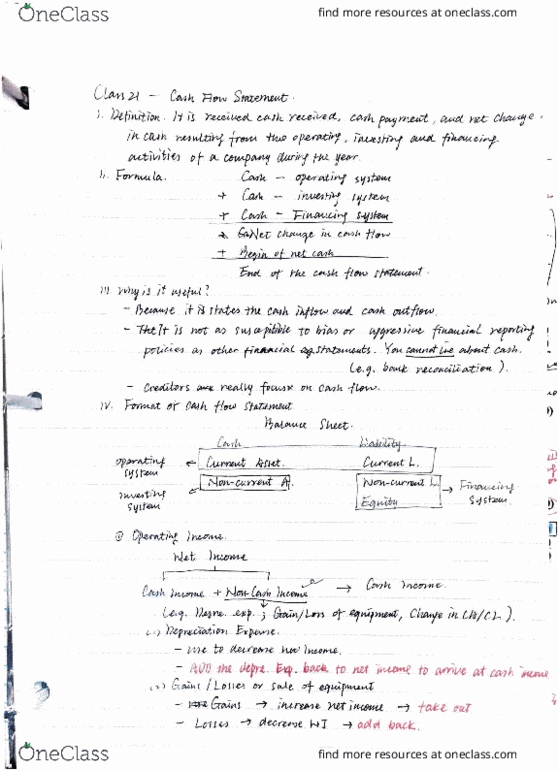 OneClass
find more resources at oneclass.com
Class 21 - Cash Flow Statement.
I. Definition. It is received cash received, cash payment, and net change
in cash resulting from two operating, investing and financing
activities of a company during the year.
II. Formula. Cash - operating system
+ Cash - investing system
+ Cash - Financing system
Net change in cash flow
+ Begin of net cash
End of the cash flow statement.
III. Why is it useful?
- Because it is states the cash inflow and cash outflow.
- It is not as susceptible to bias or aggressive financial reporting
policies as other financial statements. You cannot lie about cash.
(e.g. bank reconciliation).
- Creditors are really focus on cash flow.
IV. Format of cash flow statement
Balance Sheet.
Cash Liability
operating system ← Current Asset. Current L.
investing system ← Non-current A. Non-current L. → Financing System.
Equity
① Operating Income.
Net Income
Cash Income + Non Cash Income → Cash Income.
(e.g. Depre. exp.; Gain/Loss of equipment, Change in CA/CL).
(1) Depreciation Expense.
- use to decrease net Income.
- ADD the depre. Exp. back to net income to arrive at cash income
(2) Gains/Losses or sale of equipment
- Gains → increase net income → take out
- Losses → decrease NI → add back.
OneClass
find more resources at oneclass.com